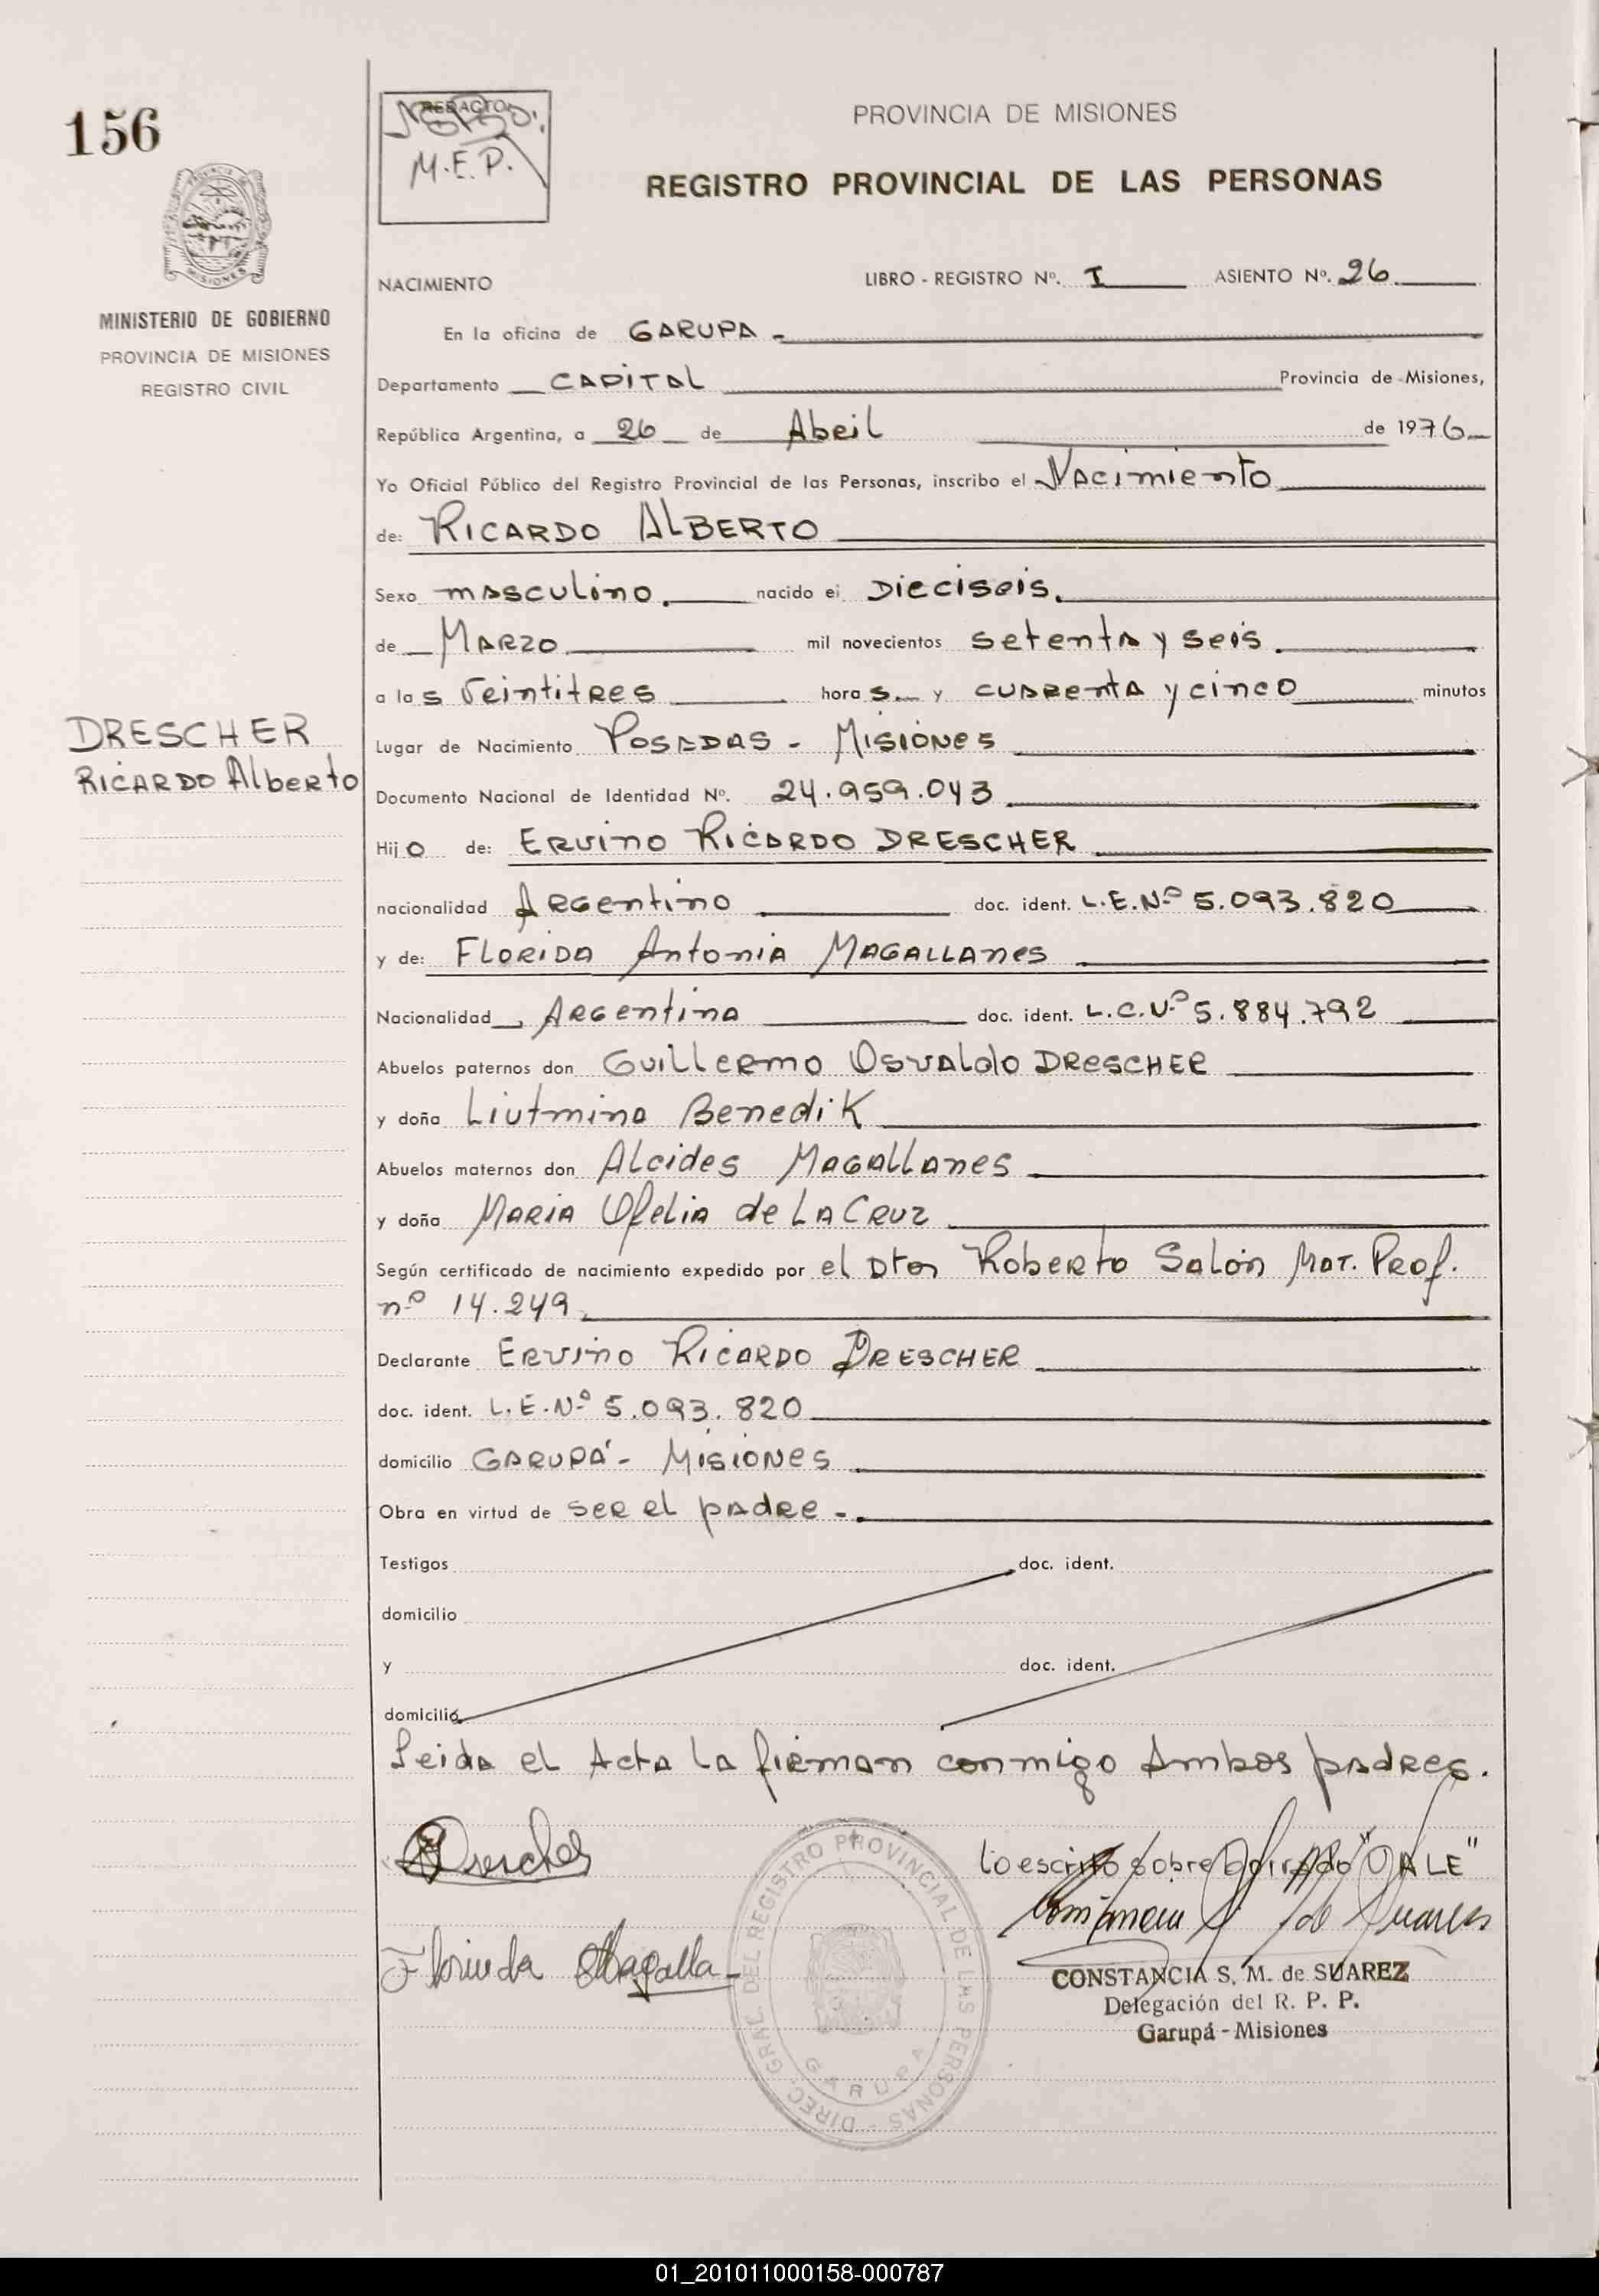 156
REDACTO
M.E.P.
PROVINCIA DE MISIONES
REGISTRO PROVINCIAL DE LAS PERSONAS
MISIONES
MINISTERIO DE GOBIERNO
PROVINCIA DE MISIONES
REGISTRO CIVIL
NACIMIENTO LIBRO - REGISTRO Nº. I ASIENTO Nº. 26
En la oficina de GARUPA -
Departamento CAPITAL Provincia de Misiones,
República Argentina, a 26 de Abril de 1976
Yo Oficial Público del Registro Provincial de las Personas, inscribo el Nacimiento
de: RICARDO ALBERTO
Sexo masculino. nacido el Dieciseis.
de MARZO mil novecientos setenta y seis.
a las veintitres horas y cuarenta y cinco minutos
DRESCHER
RICARDO Alberto
Lugar de Nacimiento POSADAS - MISIONES
Documento Nacional de Identidad Nº. 24.959.043
Hijo de: ERVINO RICARDO DRESCHER
nacionalidad Argentino doc. ident. L.E.Nº 5.093.820
y de: FLORIDA Antonia MAGALLANES
Nacionalidad Argentina doc. ident. L.C.Nº 5.884.792
Abuelos paternos don Guillermo Osvaldo DRESCHER
y doña Liutmina Benedik
Abuelos maternos don Alcides Magallanes
y doña MARIA Ofelia de LA CRUZ
Según certificado de nacimiento expedido por el Dtor Roberto Salón Mat. Prof.
nº 14.249.
Declarante ERVINO RICARDO DRESCHER
doc. ident. L.E.Nº 5.093.820
domicilio GARUPÁ - MISIONES
Obra en virtud de ser el padre -.
Testigos doc. ident.
domicilio
y doc. ident.
domicilio
Leida el Acta la firman conmigo Ambos padres.
Drescher
Lo escrito sobre "VALE"
Florinda Magalla-
DIREC. GRAL. DEL REGISTRO PROVINCIAL DE LAS PERSONAS -
GARUPA
CONSTANCIA S. M. de SUAREZ
Delegación del R. P. P.
Garupá - Misiones
01_201011000158-000787